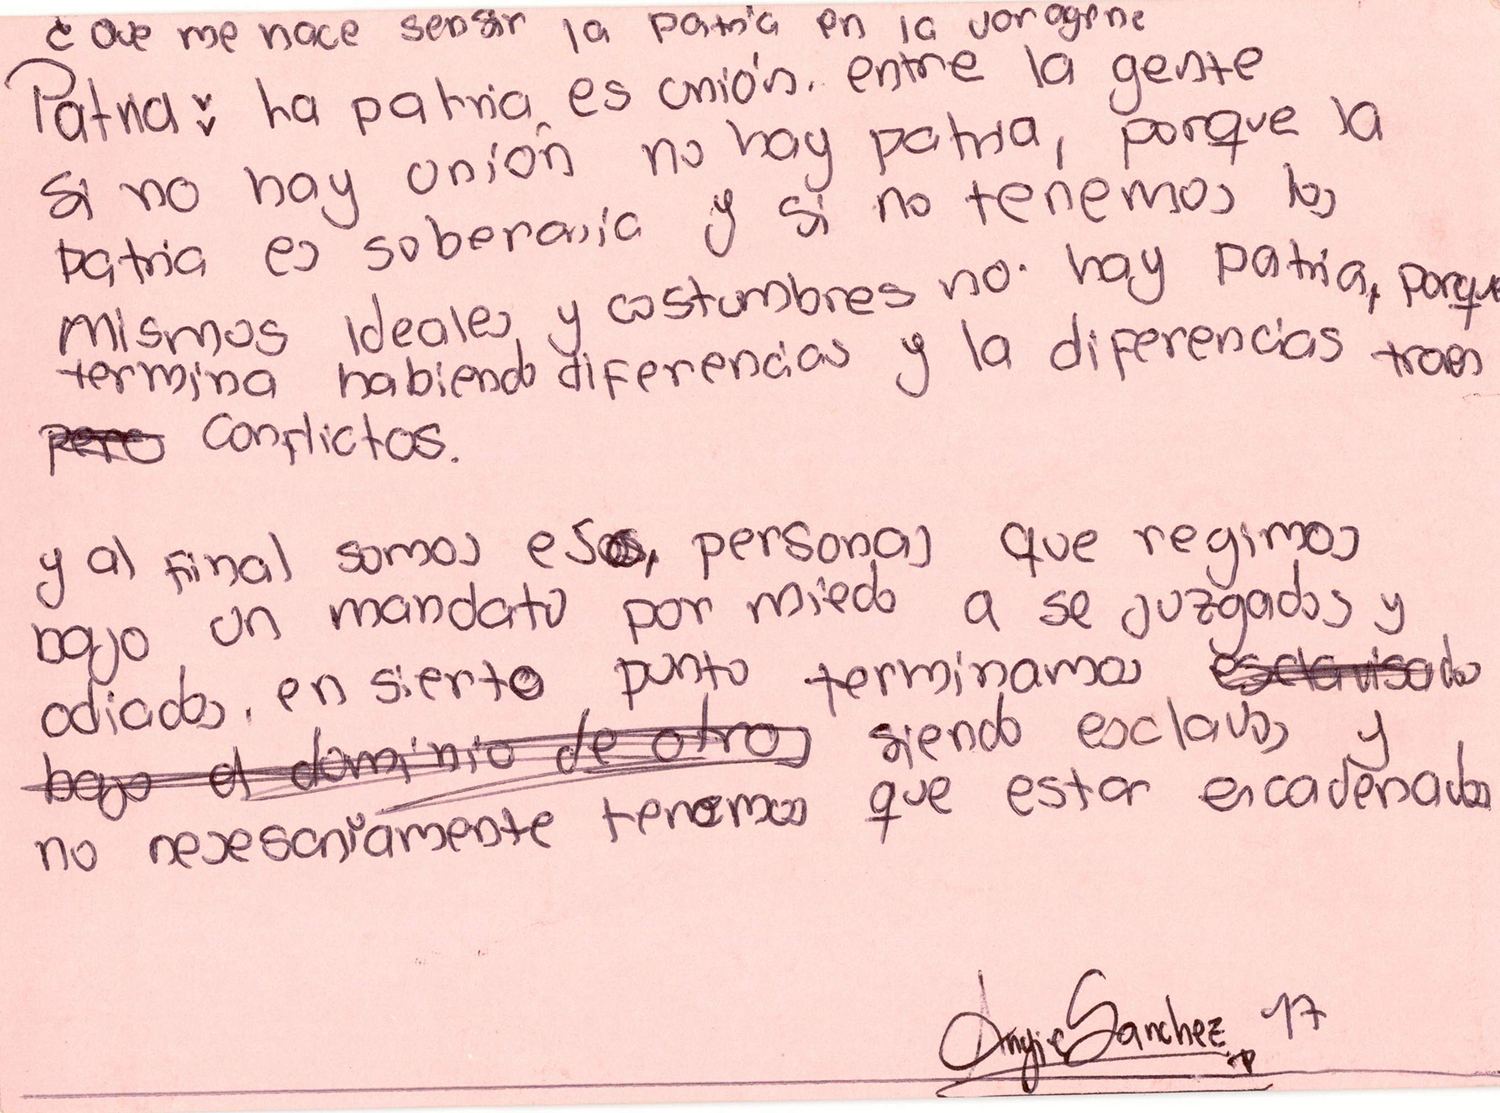 ¿Que me hace sentir la patria en la voragene
Patria: ha patria es unión. entre la gente
si no hay unión no hay patria, porque la
patria es soberania y si no tenemos los
mismos ideales y costumbres no hay patria, porque
termina habiendo diferencias y la diferencias traen
pero conflictos.
y al final somos esos, personas que regimos
bajo un mandato por miedo a se juzgados y
odiados. en sierto punto terminamos esclavisado
bajo el dominio de otros siendo esclavos y
no nesesariamente tenemos que estar encadenados
Angie Sanchez 17